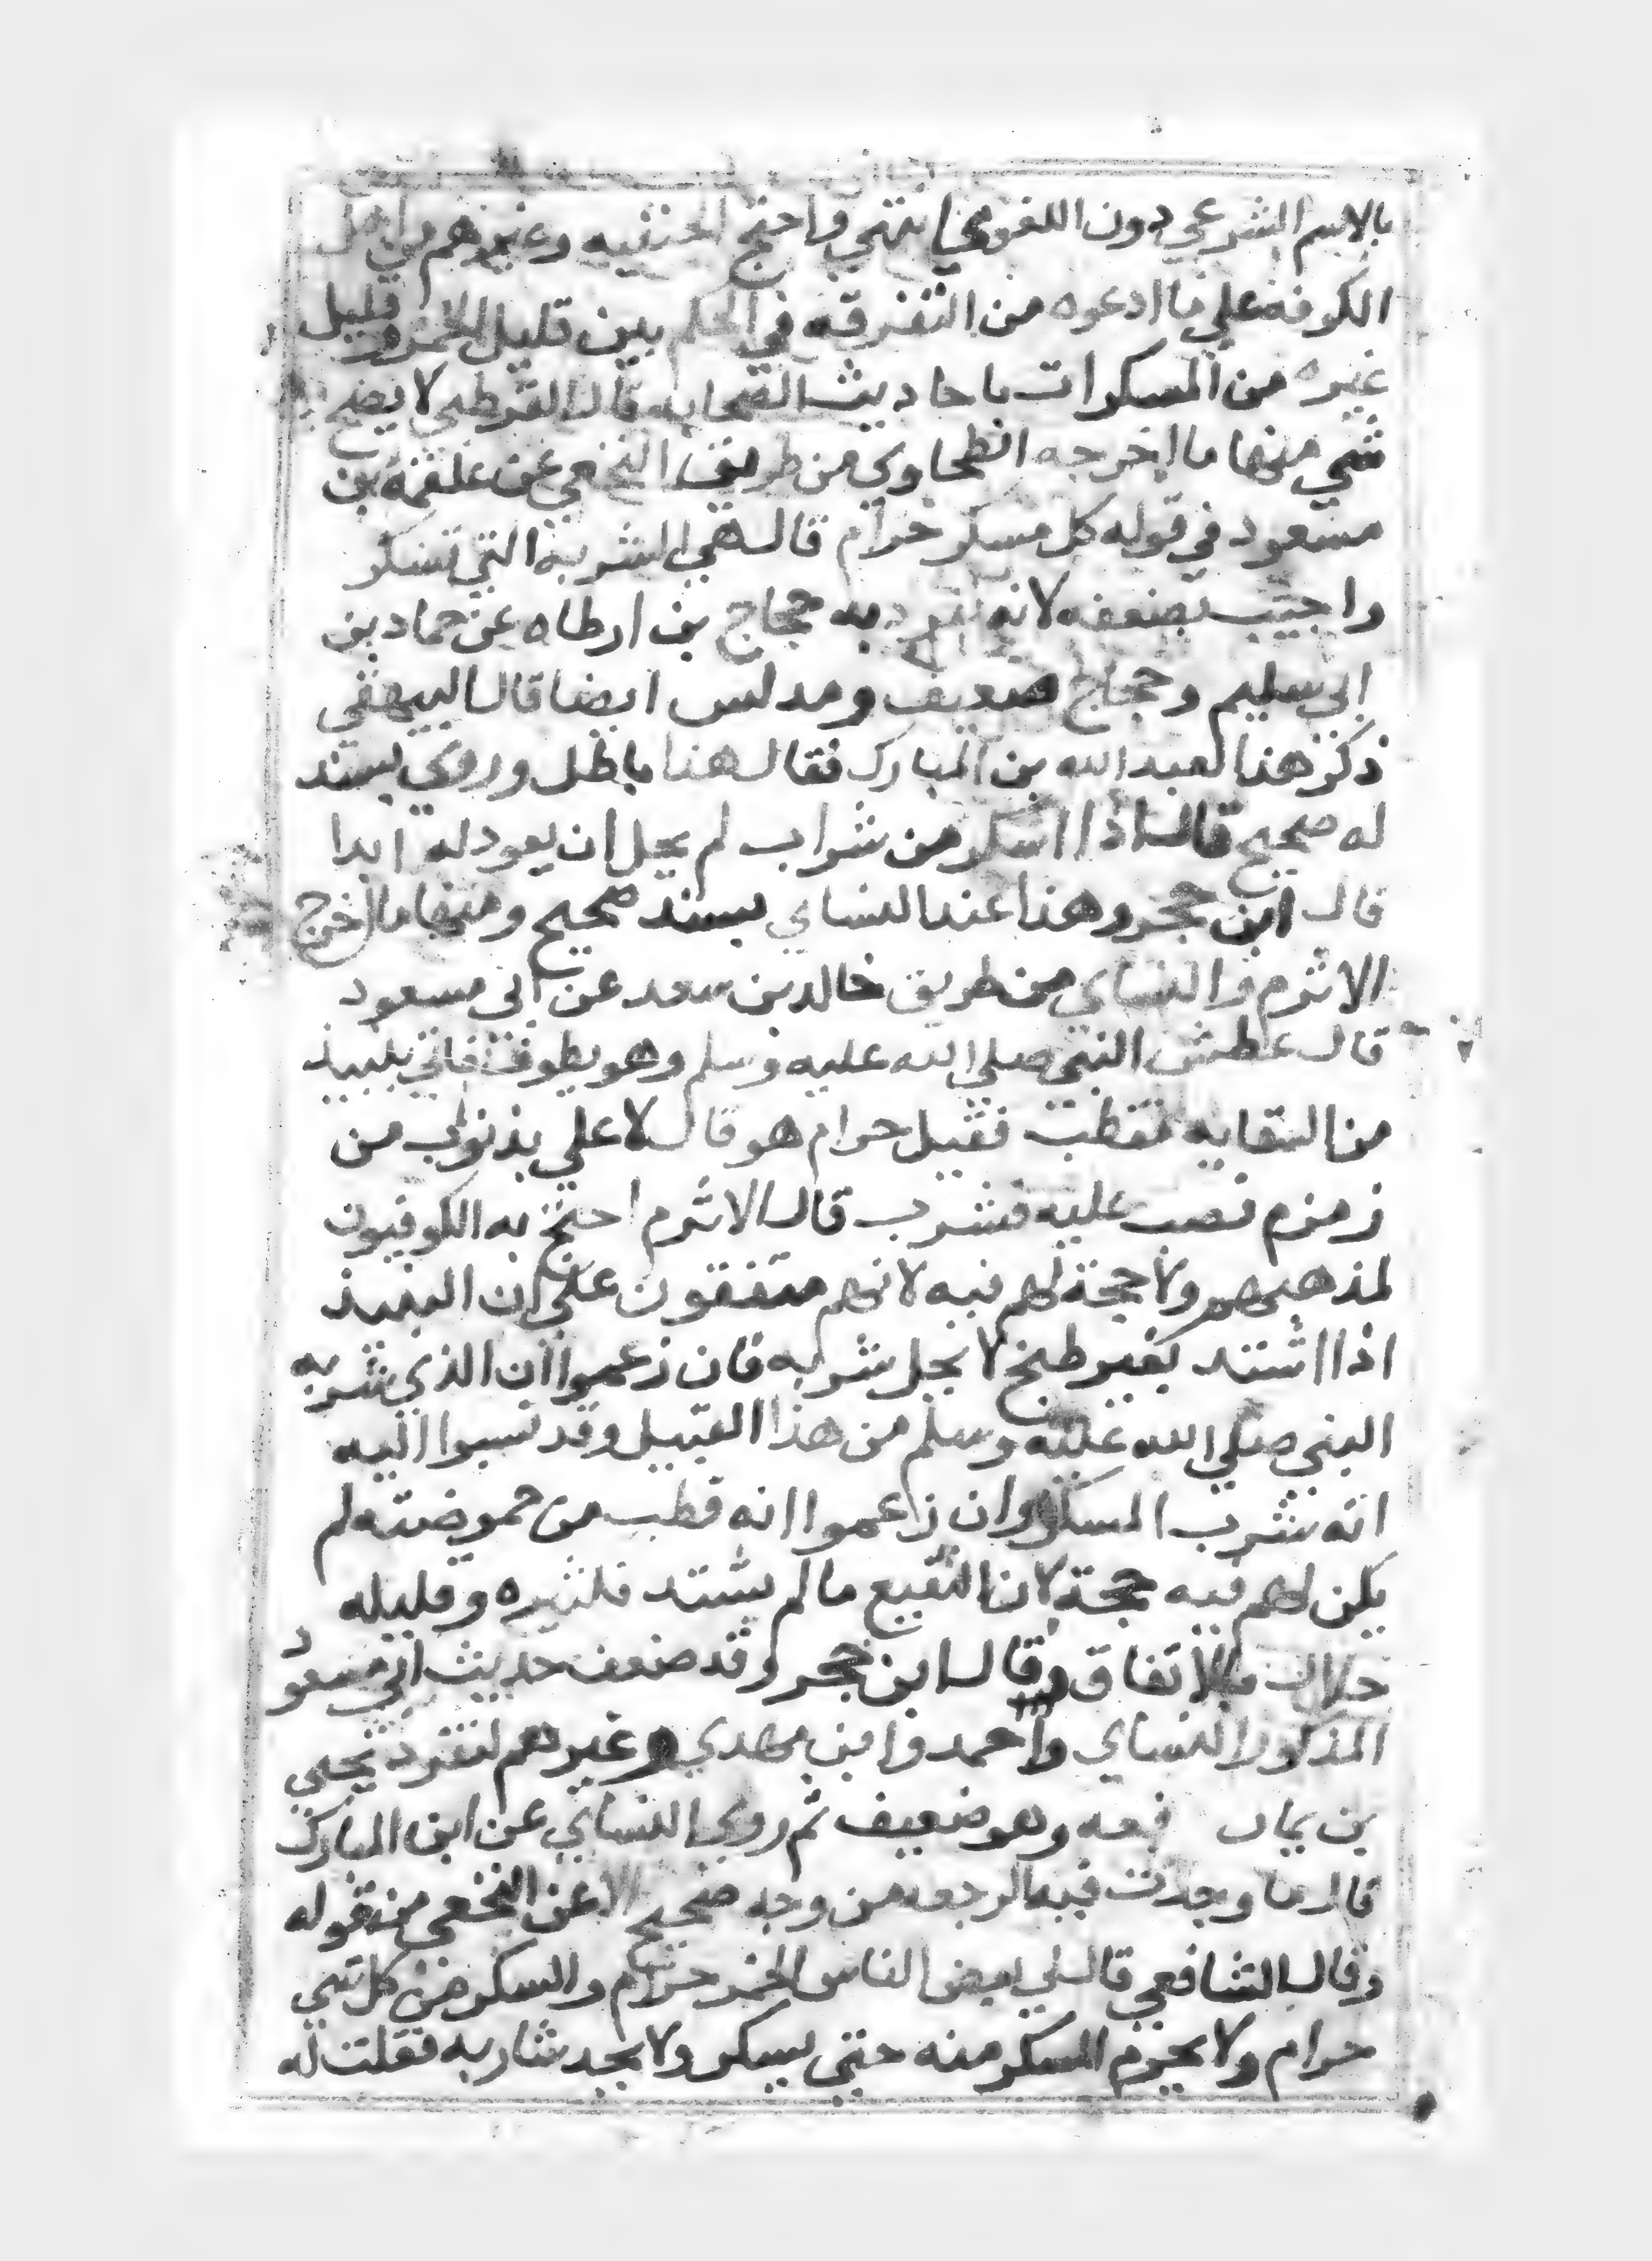 بالاسم الشرعي دون اللغوي انتهي واحتج الحنفيه وغيرهم من اهل
الكوفة علي ما ادعوه من التفرقه في الحكم بين قليل الخمر وقليل
غيره من المسكرات باحاديث الصحابه قال القرطبي لا يصح
شي منها ما اخرجه الطحاوي من طريق النخعي عن علقمة بن
مسعود في قوله كل مسكر حرام قال هي الشربه التي تسكر
واجيب بضعفه لانه تفرد به حجاج بن ارطاه عن حماد بن
ابي سليم وحجاج ضعيف ومدلس ايضا قال البيهقي
ذكر هذا لعبد الله بن المبارك فقال هذا باطل وروي بسند
له صحيح قال اذا اسكر من شراب لم يحل ان يعود له ابدا
قال ابن حجر وهذا عند النساي بسند صحيح ومنها ما اخرج
الاثرم والنساي من طريق خالد بن سعد عن ابي مسعود
قال عطش النبي صلي الله عليه وسلم وهو يطوف فاتي بنبيذ
من السقايه فقطب فقيل حرام هو قال لا علي بذنوب من
زمزم فصب عليه فشرب قال الاثرم احتج به الكوفيون
لمذهبهم ولا حجة لهم فيه لانهم متفقون علي ان النبيذ
اذا اشتد بغير طبخ لا يحل شربه فان زعموا ان الذي شربه
النبي صلي الله عليه وسلم من هذا القبيل وقد نسبوا اليه
انه شرب المسكر وان زعموا انه قطب من حموضته لم
يكن لهم فيه حجة لان النقيع ما لم يشتد فكثيره وقليله
حلال بالاتفاق وقال ابن حجر وقد ضعف حديث ابي مسعود
المذكور النساي واحمد وابن مهدي وغيرهم لتفرد يحيي
بن يمان فعه وهو ضعيف ثم روي النساي عن ابن المبارك
قال ما وجدت فيه الرجعه من وجه صحيح الا عن النخعي من قوله
وقال الشافعي قال لي بعض الناس الخمر حرام والسكر من كل شي
حرام ولا يحرم المسكر منه حتي يسكر ولا يحد شاربه فقلت له